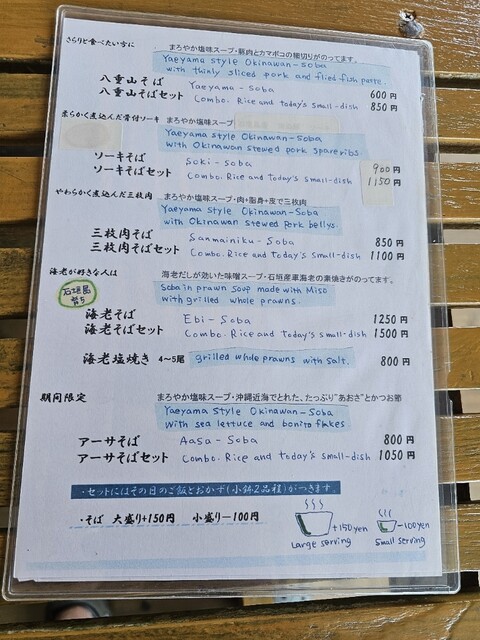 さらりと食べたい方に
まろやか塩味スープ・豚肉とカマボコの細切りがのってます。
Yaeyama style Okinawan-soba
with thinly sliced pork and flied fish paste.
八重山そば Yaeyama-Soba 600 円
八重山そばセット Combo. Rice and today's small-dish 850 円
柔らかく煮込んだ骨付ソーキ まろやか塩味スープ
Yaeyama style Okinawan-soba
with Okinawan stewed pork spareribs.
ソーキそば Soki-soba 900 円
ソーキそばセット Combo. Rice and today's small-dish 1150 円
やわらかく煮込んだ三枚肉 まろやか塩味スープ・肉+脂身+皮で三枚肉
Yaeyama style Okinawan-soba
with Okinawan stewed pork bellys.
三枚肉そば Sanmainiku-Soba 850 円
三枚肉そばセット Combo. Rice and today's small-dish 1100 円
海老が好きな人は 海老だしが効いた味噌スープ・石垣産車海老の素焼きがのってます。
石垣島
Soba in prawn soup made with Miso
with grilled whole prawns.
海老そば Ebi-Soba 1250 円
海老そばセット Combo. Rice and today's small-dish 1500 円
海老塩焼き 4〜5尾 grilled whole prawns with salt. 800 円
期間限定 まろやか塩味スープ・沖縄近海でとれた、たっぷり"あおさ"とかつお節
Yaeyama style Okinawan-Soba
with sea lettuce and bonito flakes
アーサそば Aasa-Soba 800 円
アーサそばセット Combo. Rice and today's small-dish 1050 円
・セットにはその日のご飯とおかず(小鉢2品程)がつきます。
・そば 大盛り+150円 小盛り−100円
+150yen
Large serving
−100yen
Small serving